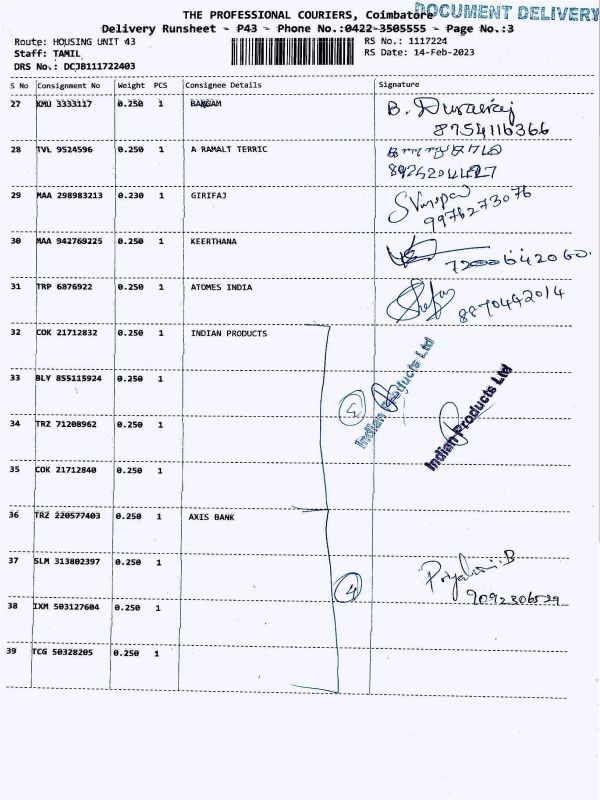 THE PROFESSIONAL COURIERS, Coimbatore
DOCUMENT DELIVERY
Delivery Runsheet - P43 - Phone No.:0422-3505555 - Page No.:3
Route: HOUSING UNIT 43
RS No.: 1117224
Staff: TAMIL
RS Date: 14-Feb-2023
DRS No.: DCJB111722403
S No Consignment No Weight PCS Consignee Details Signature
27 KMU 3333117 0.250 1 B. Durairaj
8754116366
28 TVL 9524596 0.250 1 A RAMALT TERRIC
29 MAA 298983213 0.230 1 GIRIFAJ
9976273076
30 MAA 942769225 0.250 1 KEERTHANA
7200642060.
31 TRP 6876922 0.250 1 ATOMES INDIA
8870442014
32 COK 21712832 0.250 1 INDIAN PRODUCTS
33 BLY 855115924 0.250 1
3
Indian Products Ltd
Indian Products Ltd
34 TRZ 71208962 0.250 1
35 COK 21712840 0.250 1
36 TRZ 220577403 0.250 1 AXIS BANK
37 SLM 313802397 0.250 1
4
38 IXM 503127604 0.250 1
39 TCG 50328205 0.250 1